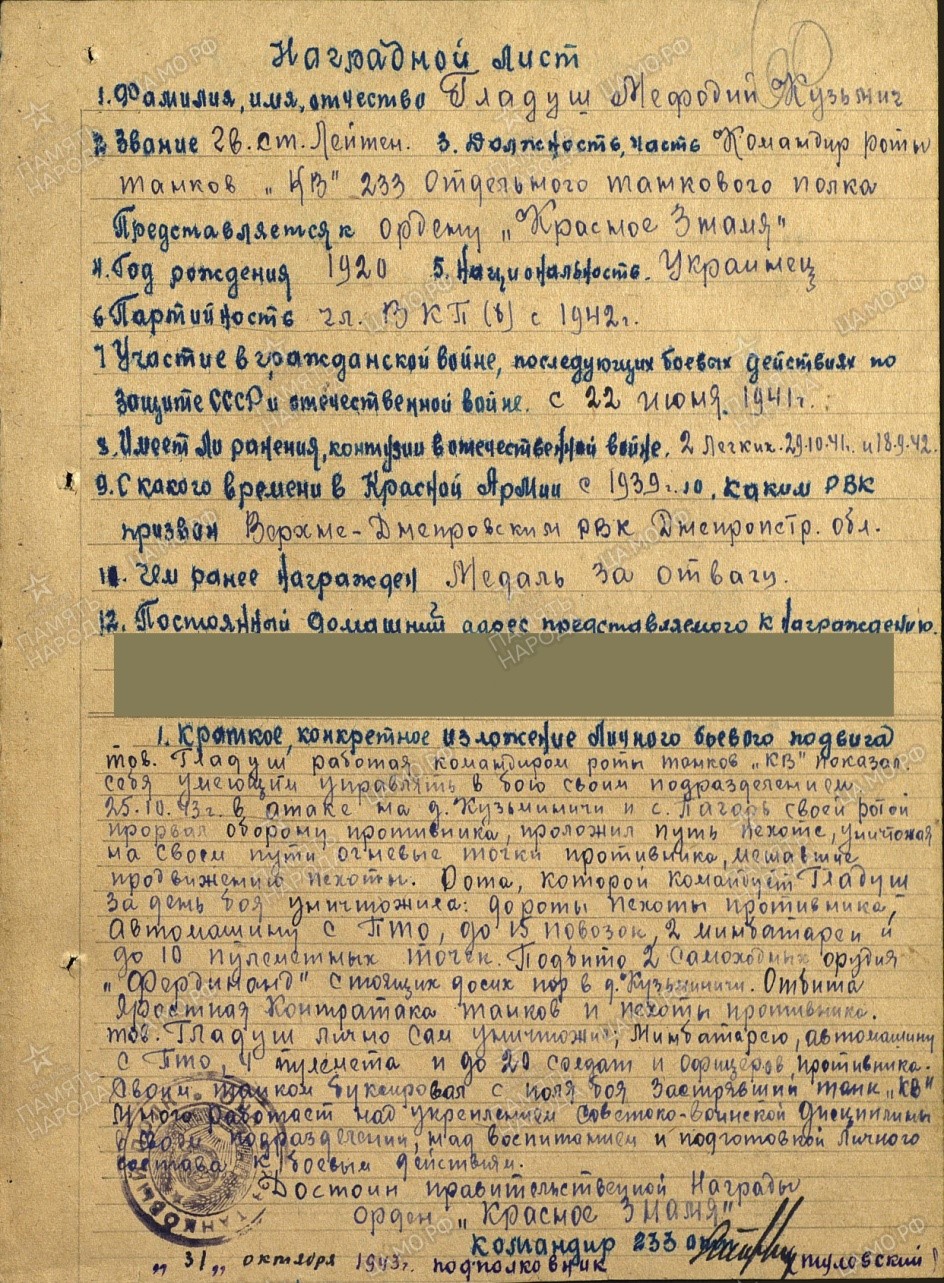 Наградной лист
1. Фамилия, имя, отчество Гладуш Мефодий Кузьмич
2. Звание Гв. ст. Лейтен. 3. Должность, часть Командир роты
танков „КВ" 233 Отдельного танкового полка
Представляется к ордену „Красное Знамя"
4. Год рождения 1920 5. Национальность. Украинец
6 Партийность чл. ВКП(б) с 1942г.
7 Участие в гражданской войне, последующих боевых действиях по
защите СССР и отечественной войне. с 22 июня 1941г.
8. Имеет ли ранения, контузии в отечественной войне. 2 легких. 29.10.41. и 18.9.42.
9. С какого времени в Красной Армии с 1939г. 10. каким РВК
призван Верхне-Днепровским РВК Днепропстр. обл.
11. Чем ранее награжден Медаль за отвагу.
12. Постоянный домашний адрес представляемого к награждению.
1. Краткое, конкретное изложение личного боевого подвига
тов. Гладуш работая командиром роты танков „КВ" показал
себя умеющим управлять в бою своим подразделением
25.10.43г. в атаке на д. Кузьминичи и с. Лагодь своей ротой
прорвал оборону противника, проложил путь пехоте, уничтожая
на своем пути огневые точки противника, мешавшие
продвижению пехоты. Рота, которой командует Гладуш
за день боя уничтожила: до роты пехоты противника,
Автомашину с ПТО, до 15 повозок, 2 минбатареи и
до 10 пулеметных точек. Подбито 2 Самоходных орудия
„Фердинанд" стоящих до сих пор в д. Кузьминичи. Отбита
яростная Контратака танков и пехоты противника.
тов. Гладуш лично сам уничтожил; Минбатарею, автомашину
с ПТО, 4 пулемета и до 20 солдат и офицеров противника.
Своим танком буксировал с поля боя застрявший танк „КВ"
Много работает над укреплением советско-воинской дисциплины
в своем подразделении, над воспитанием и подготовкой личного
состава к боевым действиям.
Достоин правительственной Награды
орден „Красное Знамя"
Командир 233
„31„ октября 1943г. подполковник
ПАМЯТЬ НАРОДА
ЦАМО.РФ